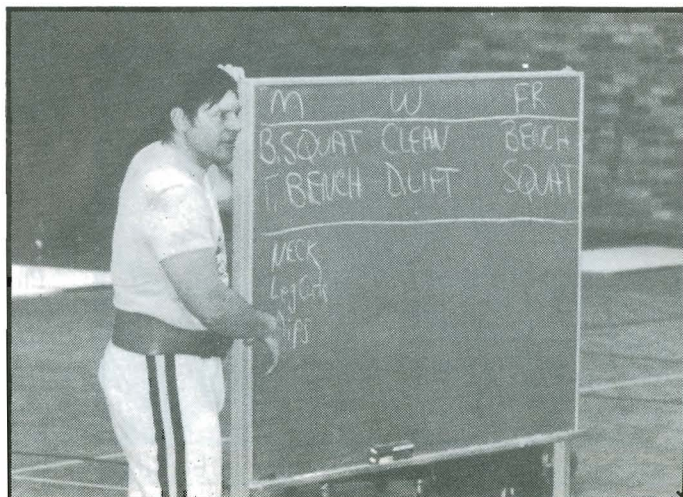 M W FR
B. SQUAT CLEAN BENCH
T. BENCH D.LIFT SQUAT
NECK
Leg Curls
Dips